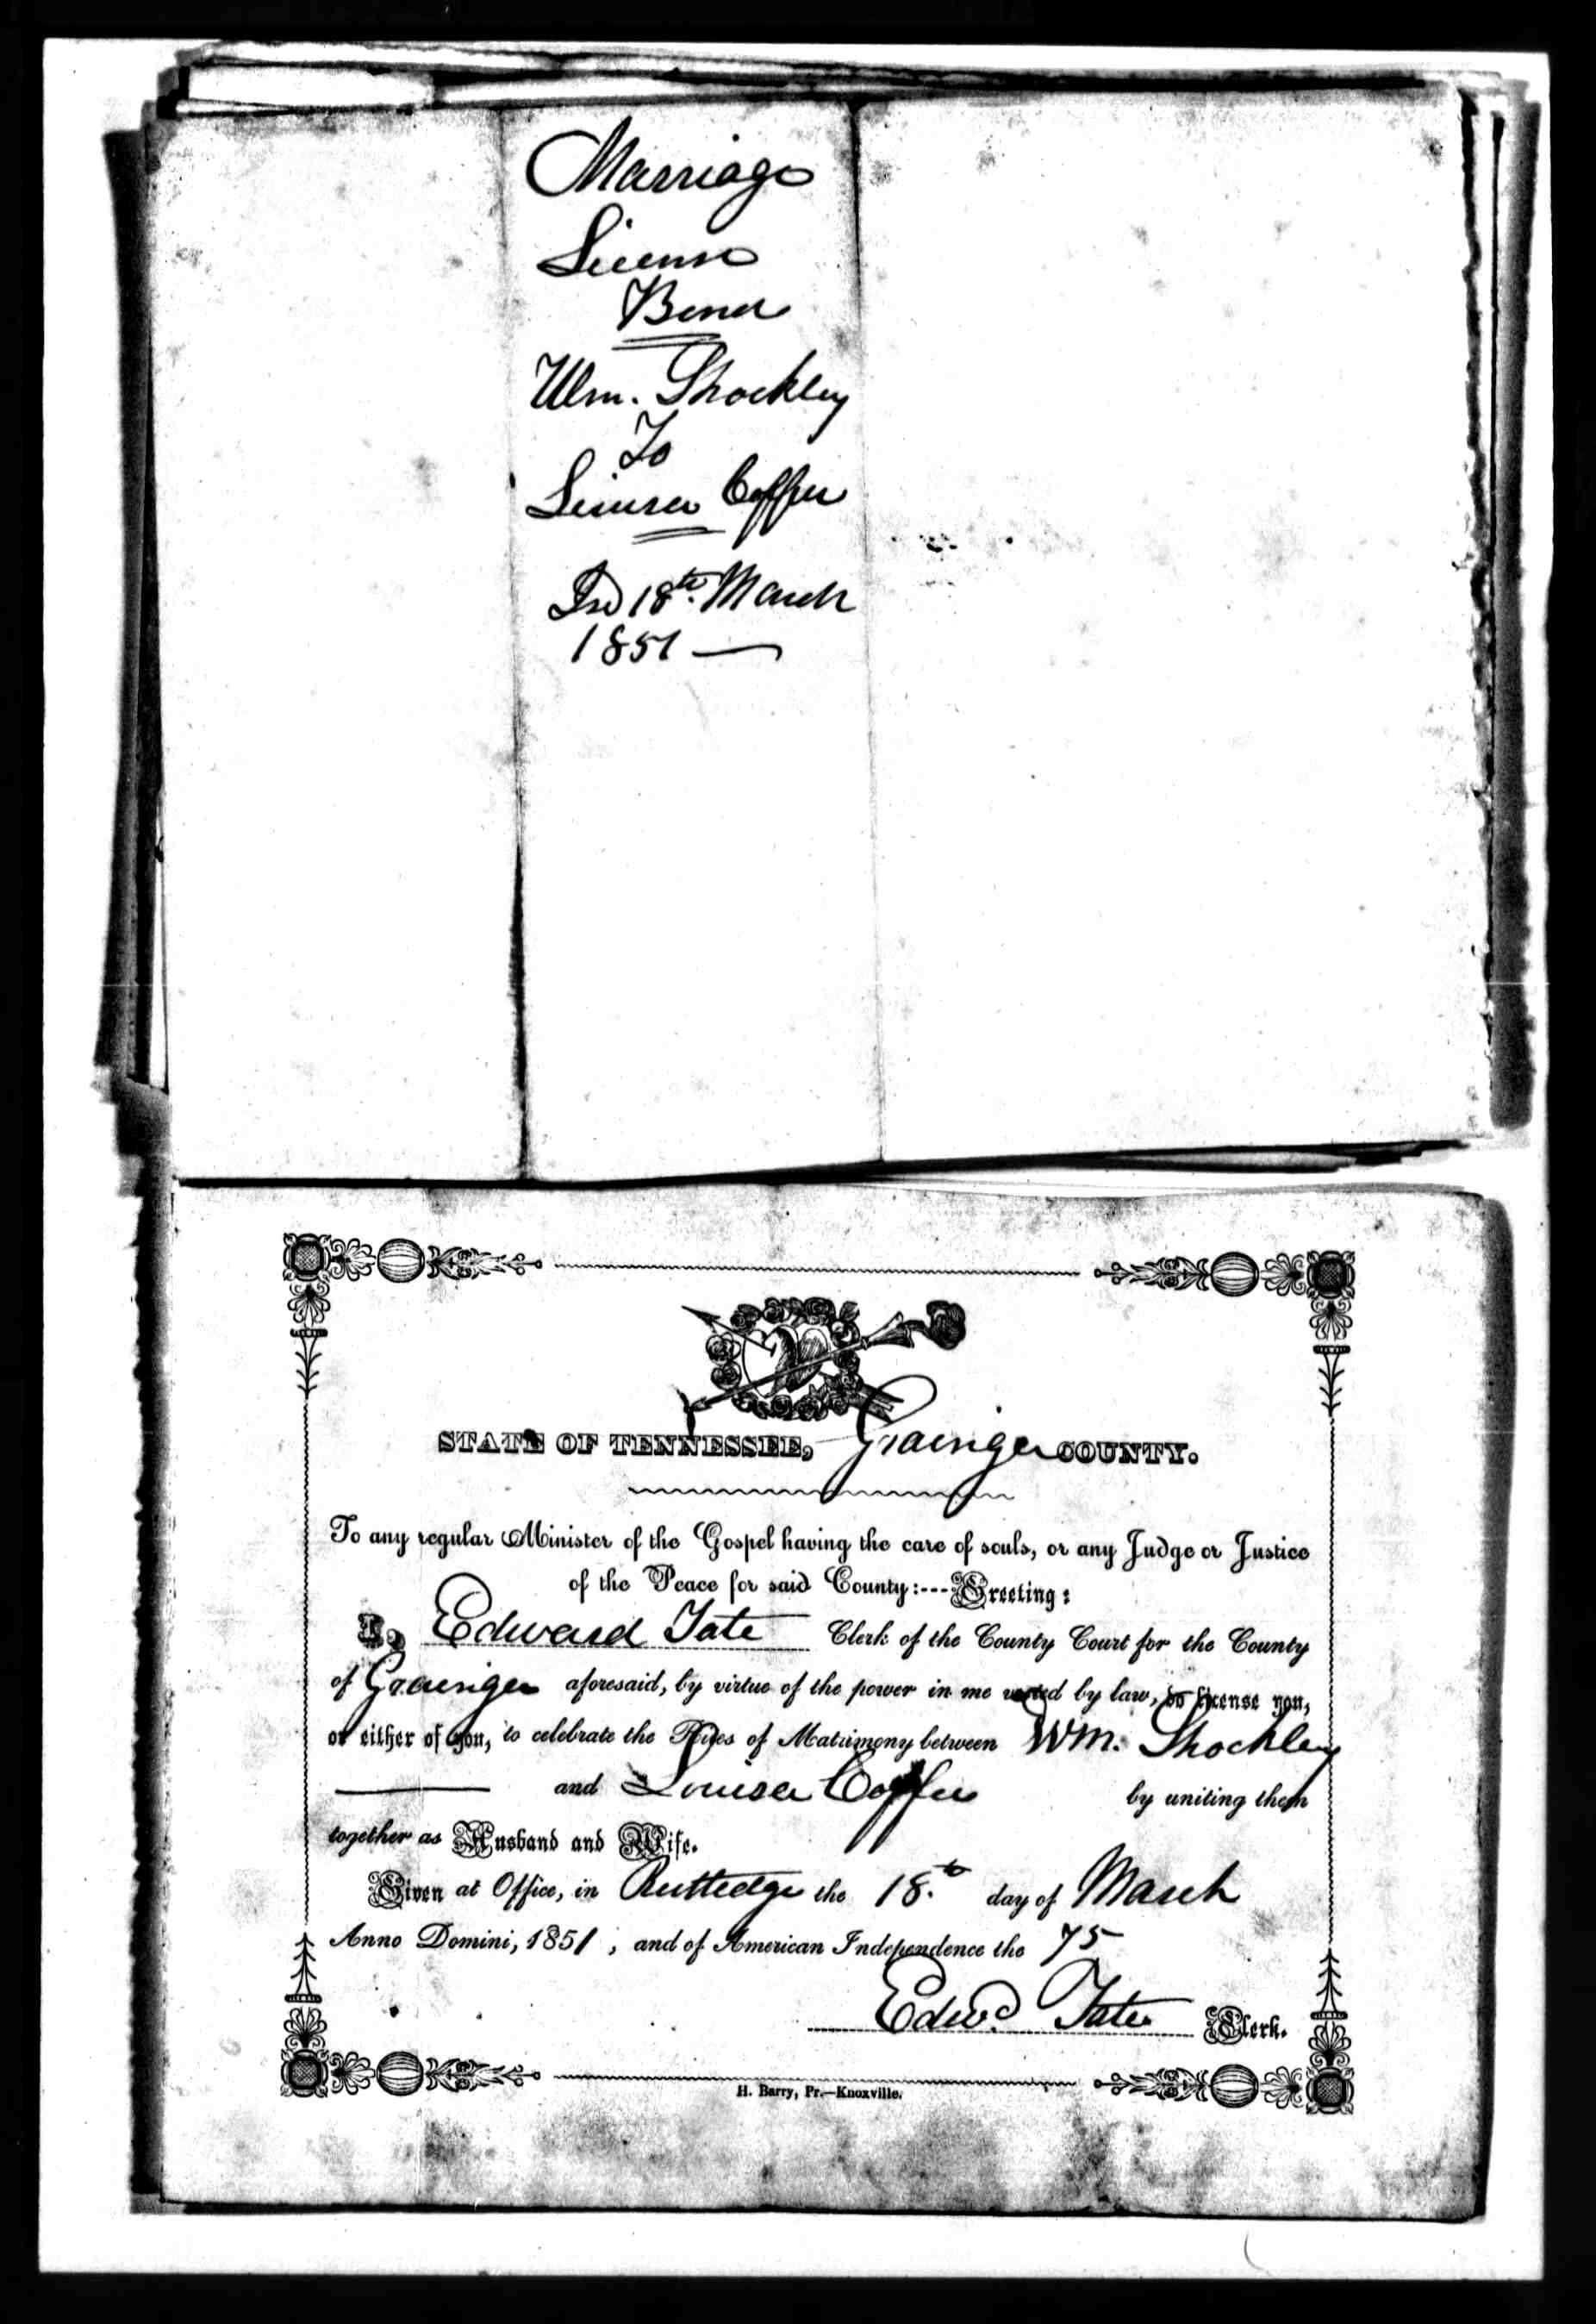 Marriage
License
Bond
Wm. Shockley
To
Louisa Coffee
Isd 18th March
1851
STATE OF TENNESSEE, Grainger COUNTY.
To any regular Minister of the Gospel having the care of souls, or any Judge or Justice
of the Peace for said County:---Greeting:
I, Edward Tate Clerk of the County Court for the County
of Grainger aforesaid, by virtue of the power in me vested by law, do license you,
or either of you, to celebrate the Rites of Matrimony between Wm. Shockley
and Louisa Coffee by uniting them
together as Husband and Wife.
Given at Office, in Rutledge the 18.th day of March
Anno Domini, 1851, and of American Independence the 75
Edwd. Tate Clerk.
H. Barry, Pr.—Knoxville.